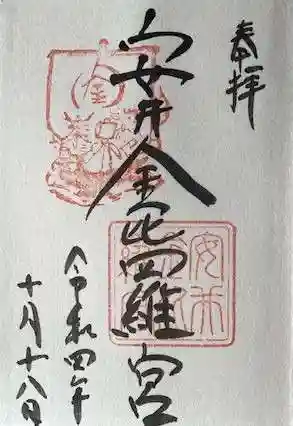 奉拝
安井金毘羅宮
令和四年
十月十八日